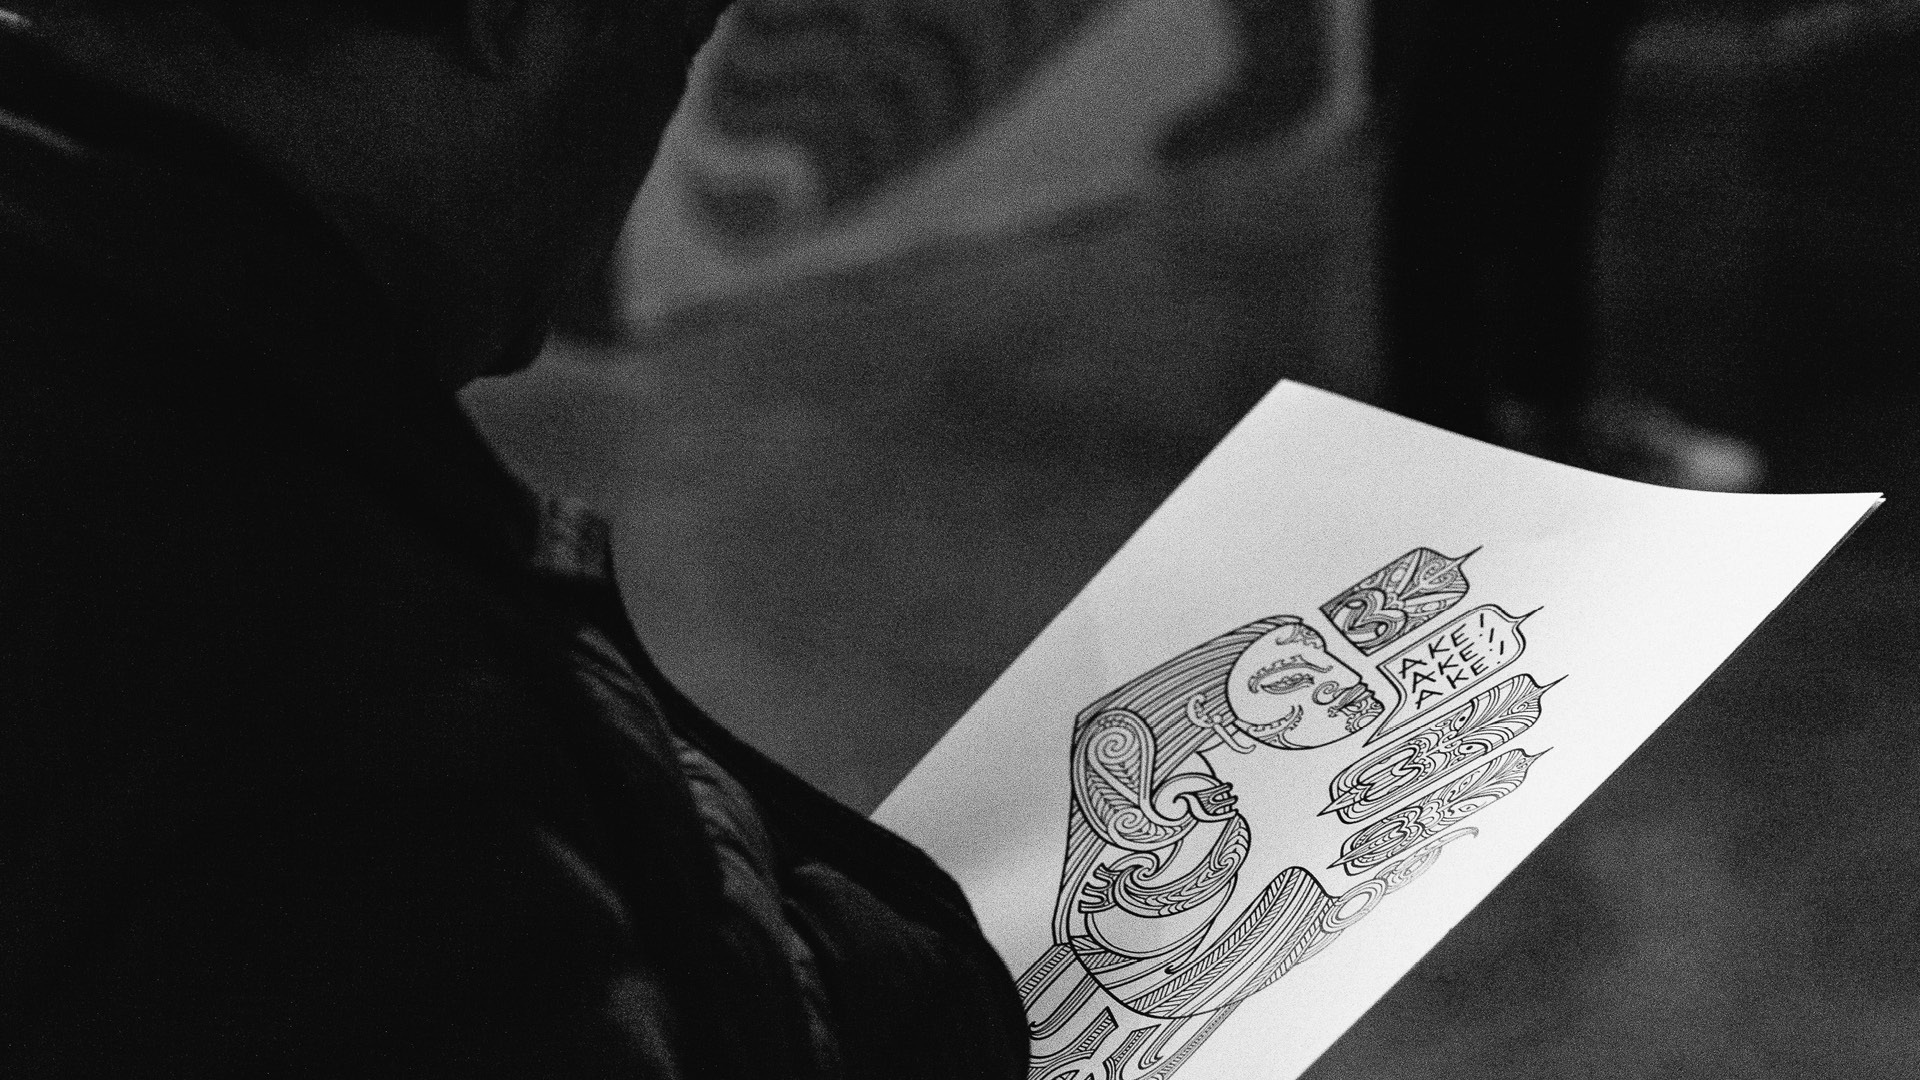 AKE
AKE
AKE